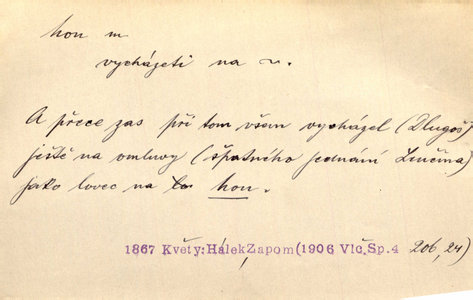 hon m
vycházeti na ~.
A přece zas při tom všem vycházel (Dlugoš)
ještě na omluvy (špatného jednání Lucčina)
jako lovec na hon.
1867 Květy:Hálek,Zapom(1906 Vlč.Sp.4 206,24)